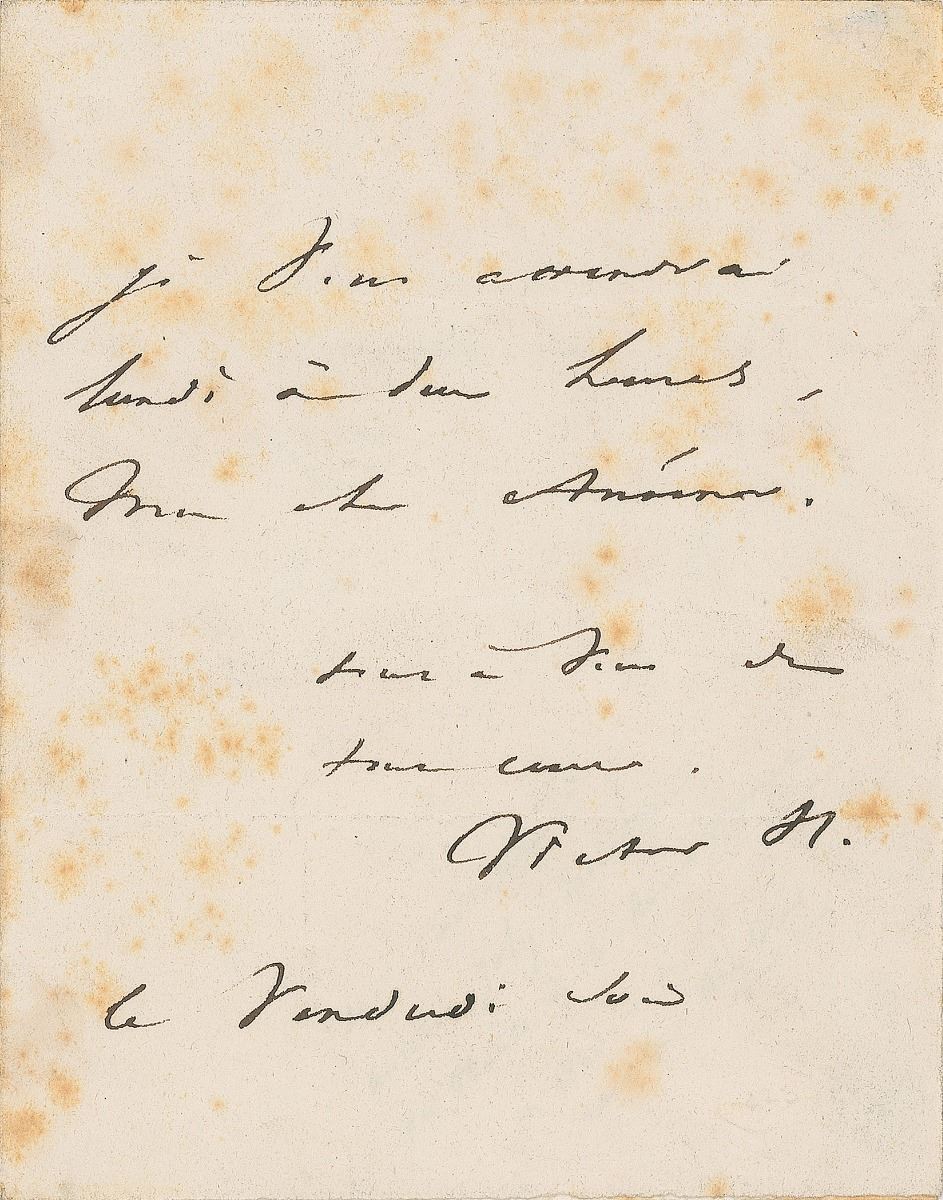 je vous attendrai
lundi à deux heures,
Mon cher
tout à vous de
tout cœur.
Victor H.
le Vendredi soir